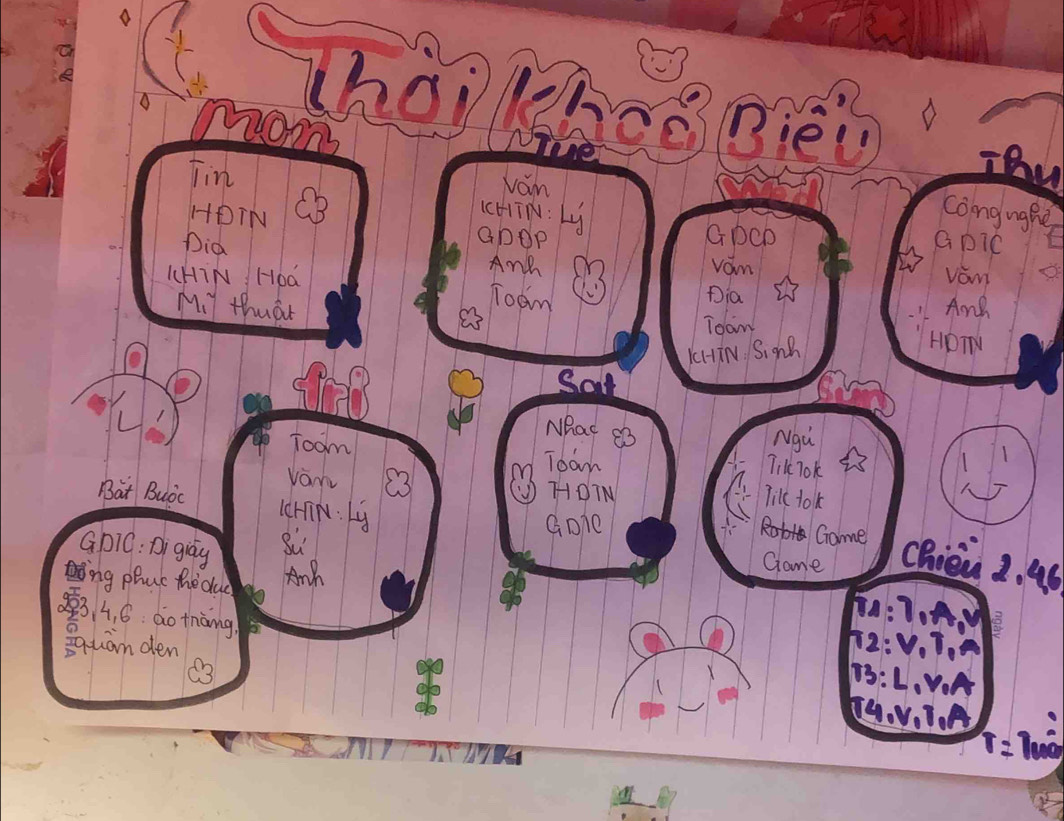 Thời Khoá Biểu
Mon
Tin
HĐTN
Địa
KHTN: Hoá
Mĩ thuật
Tue
Văn
KHTN: Lý
GDĐP
Anh
Toán
Wed
GDCD
Văn
Địa
Toán
KHTN: Sinh
Thu
Công nghệ
GDTC
Văn
Anh
HĐTN
fri
Toán
Văn
KHTN: Lý
Sử
Anh
Sat
Nhạc
Toán
HĐTN
GDTC
Sun
Ngủ
TikTok
Tik tok
Game
Game
Bắt Buộc
GDTC: Đi giày
đồng phục thể dục
2,3,4,6: áo trắng,
quần đen
HỒNG HÀ
Chiều 2,4,6
T1: T,A,V
T2: V,T,A
T3: L,V,A
T4, V,T,A
ngày
T = Tuần